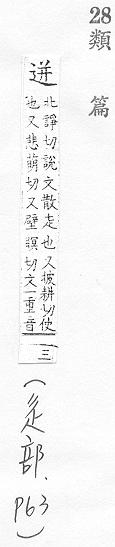 28
類篇
迸
北諍切說文散走也又披耕切使
也又悲萌切又壁瞑切文一重音
三
(辵部、P63)